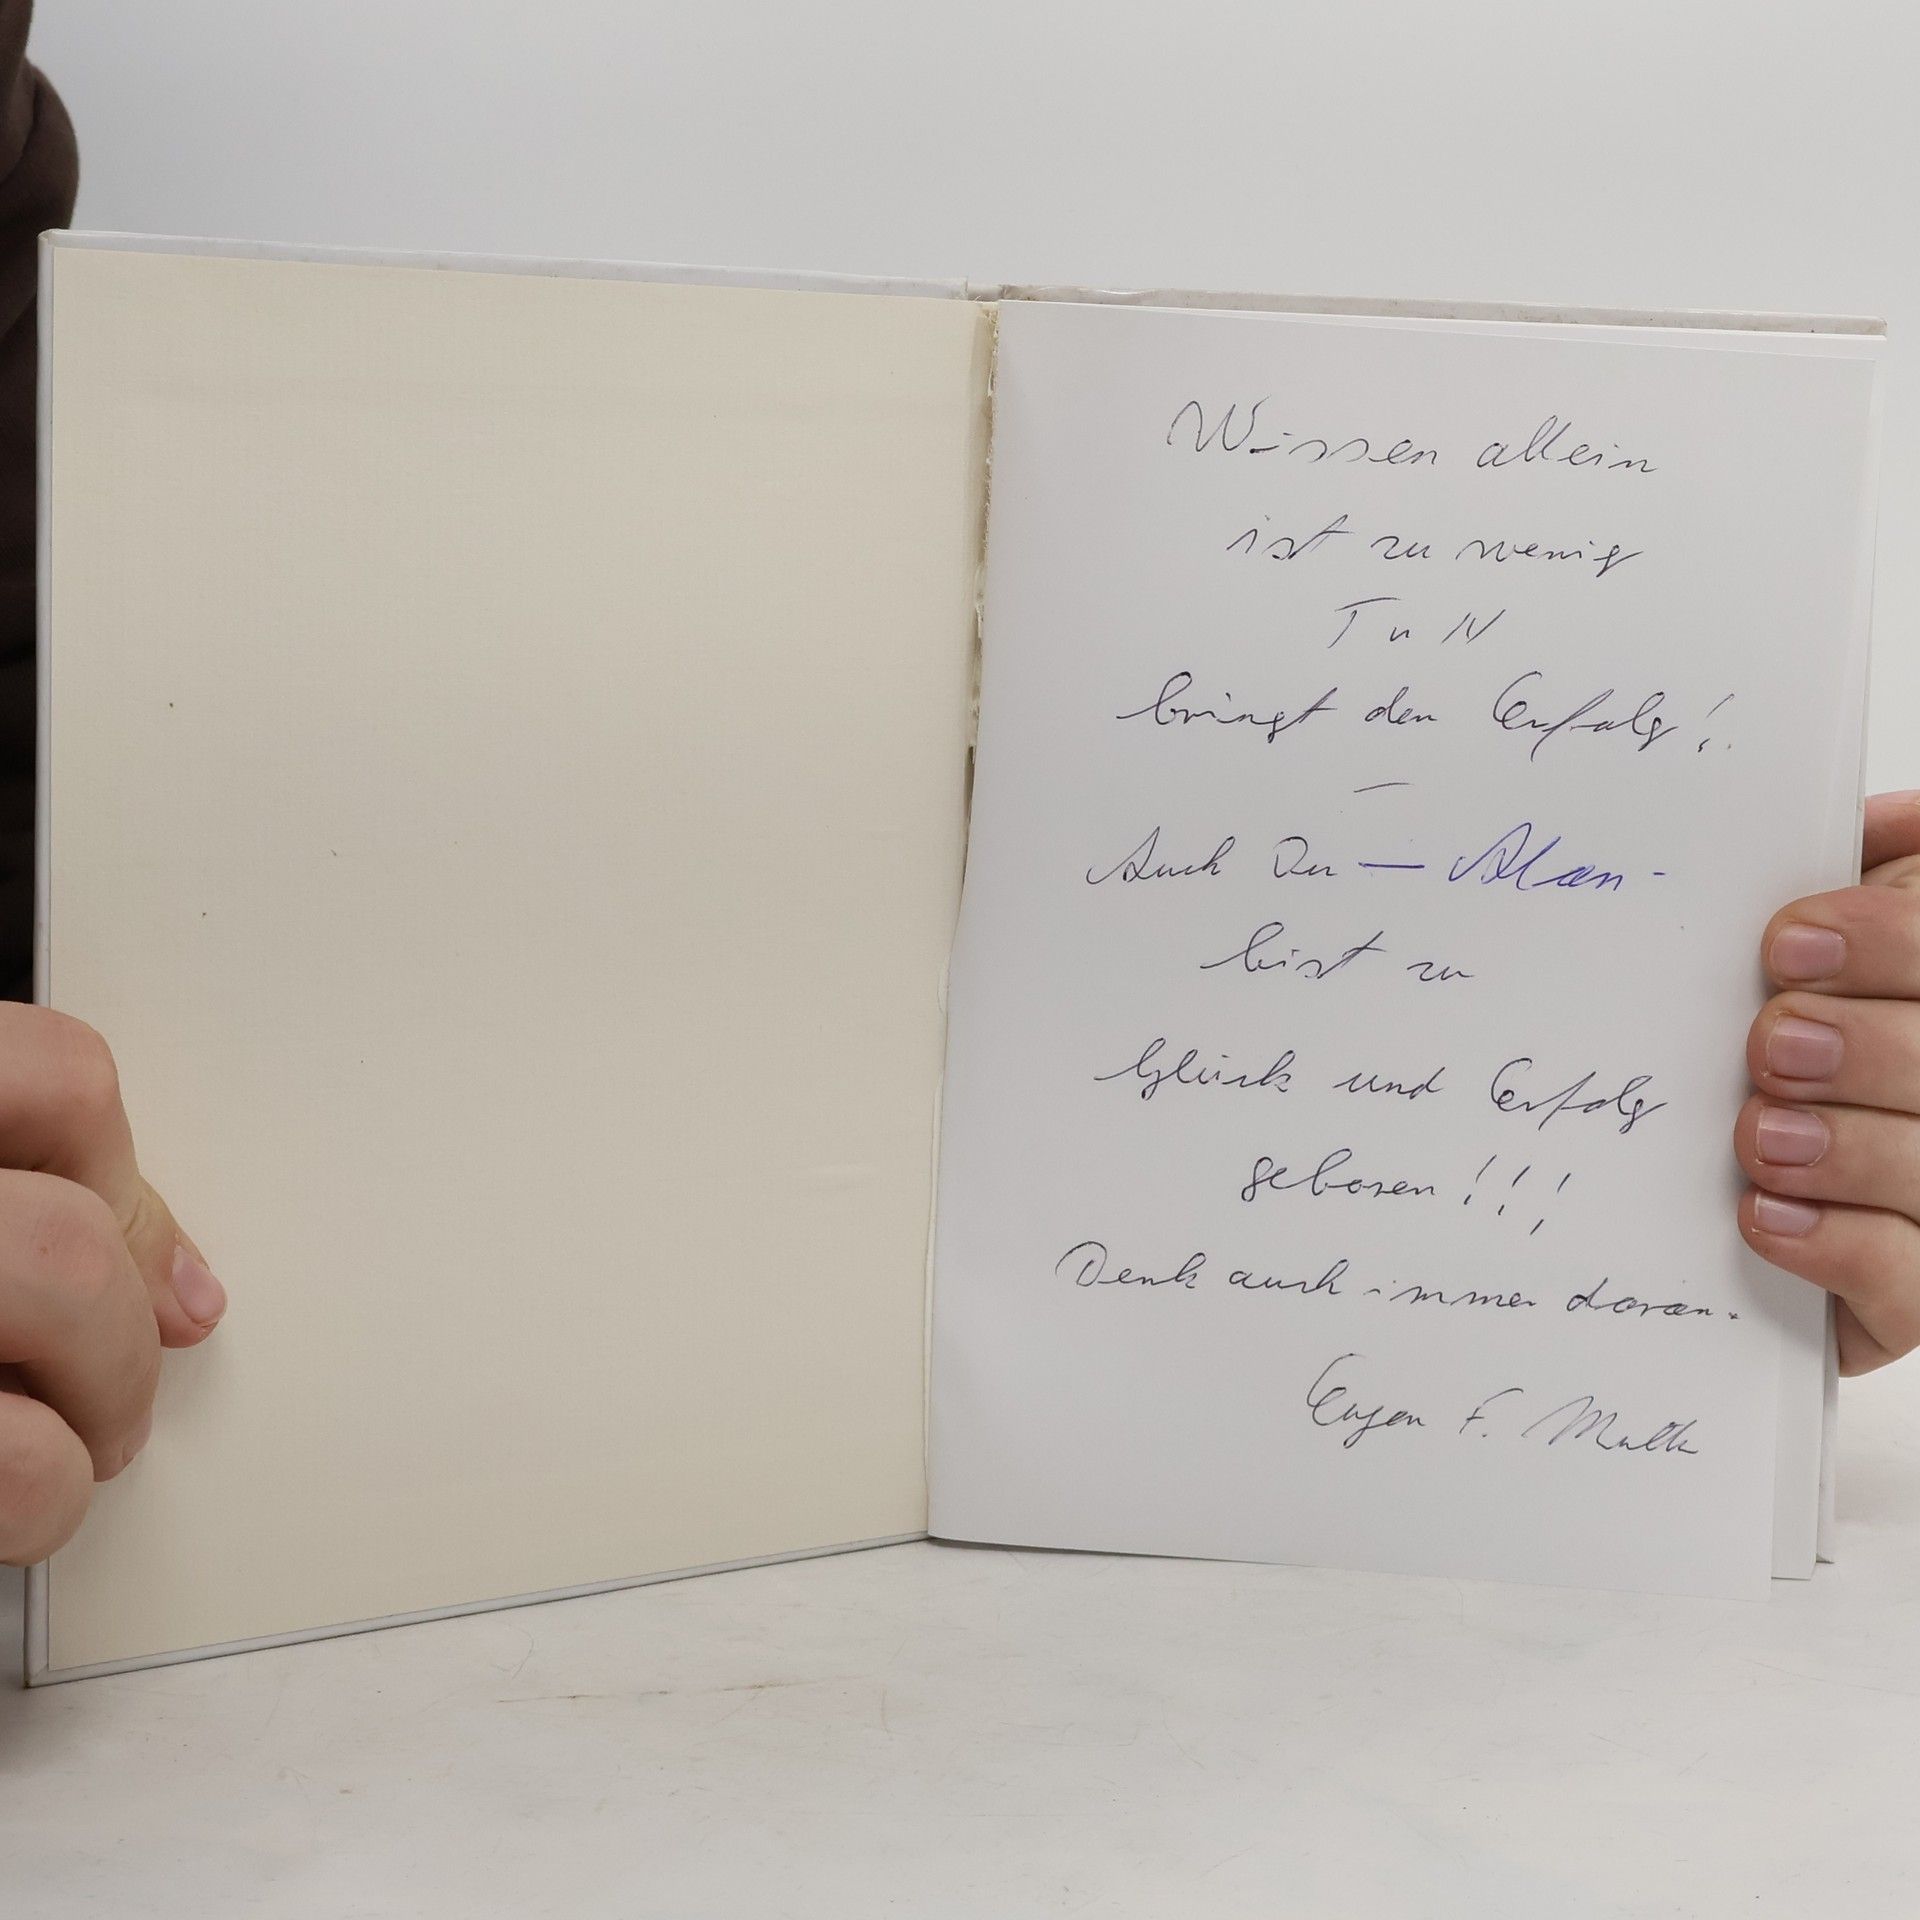 Wissen allein
ist zu wenig
TuN
bringt den Erfolg!
—
Auch Du — Alan -
bist zu
Glück und Erfolg
geboren!!!
Denk auch immer daran.
Eugen F.